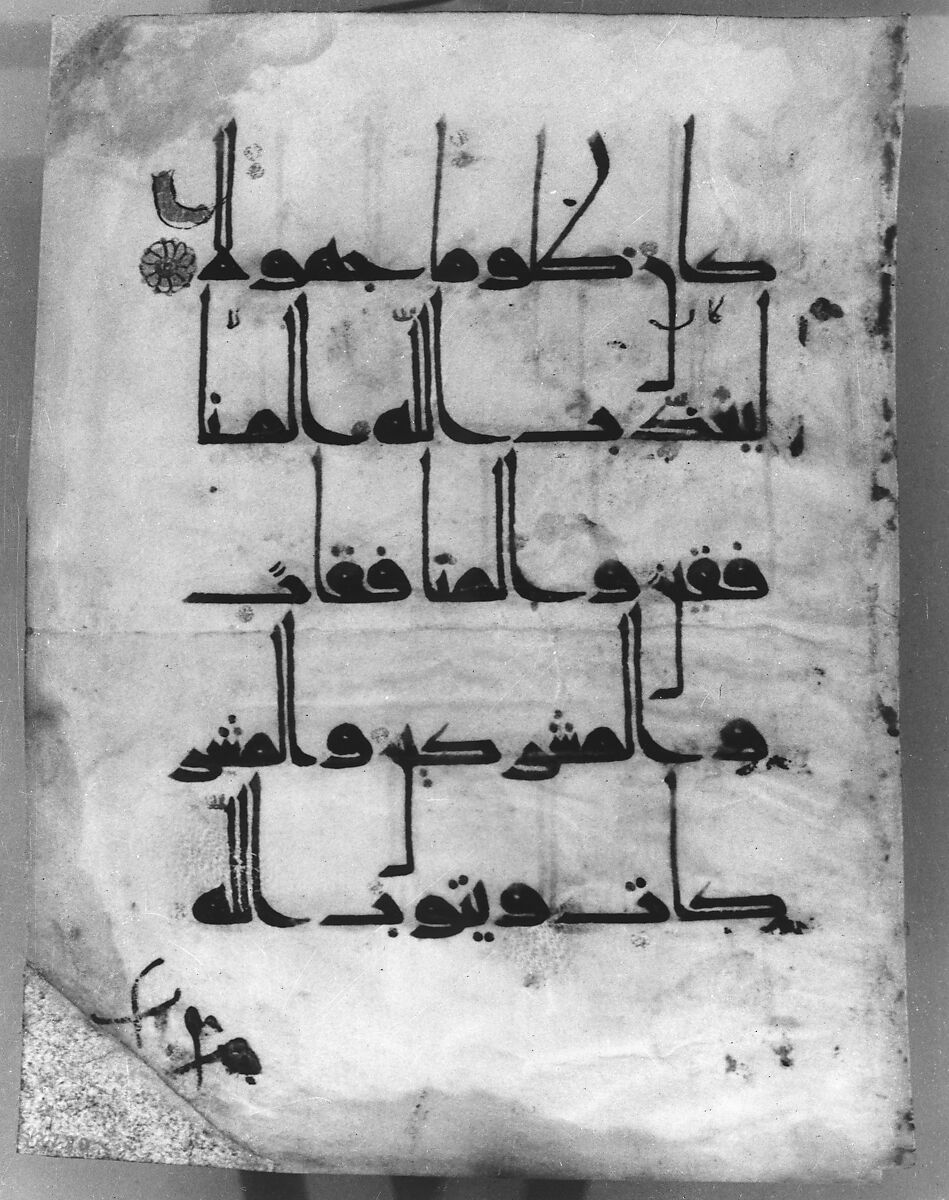 كان ظلوما جهولا
ليعذب الله المنا
فقين و المنافقات
و المشركين و المشر
كات و يتوب الله